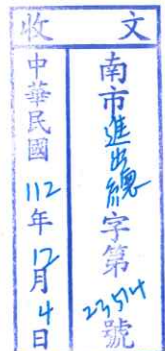 收文
南市進出總字第23514號
中華民國112年12月4日